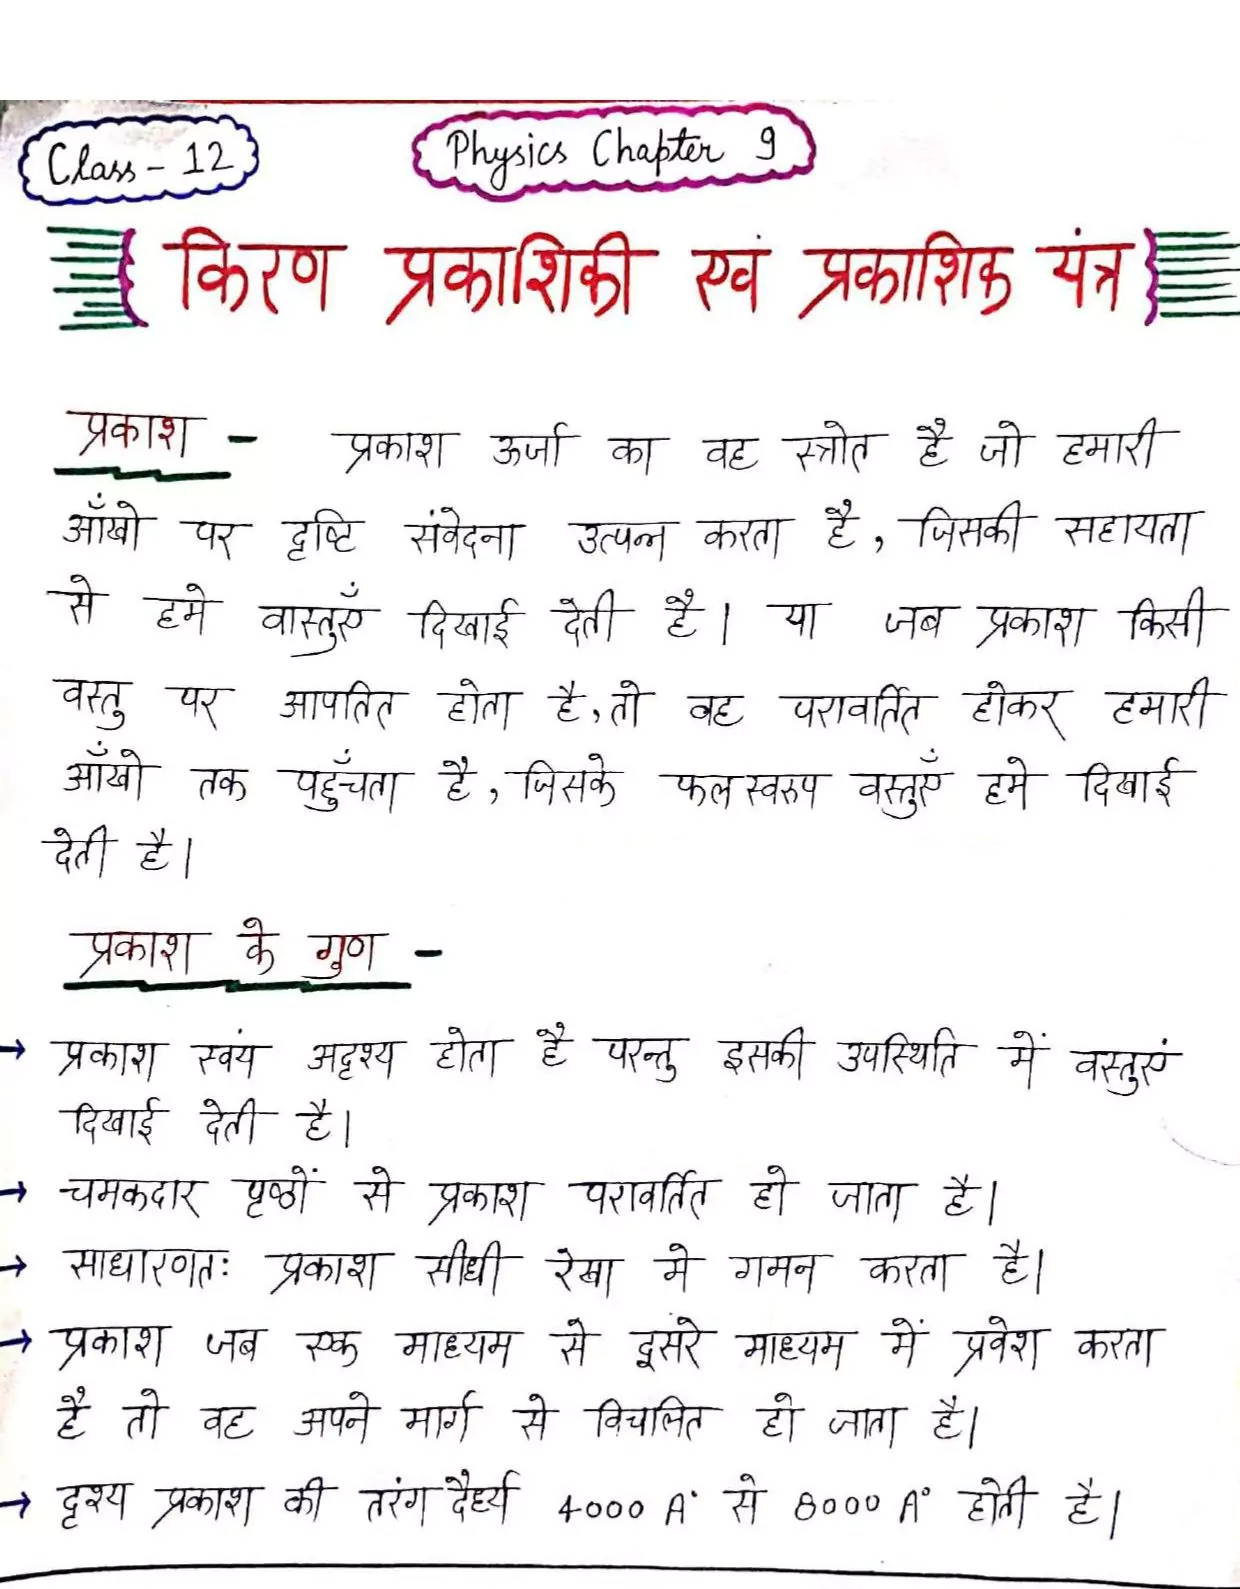 Class - 12
Physics Chapter 9
किरण प्रकाशिकी एवं प्रकाशिक यंत्र
प्रकाश - प्रकाश ऊर्जा का वह स्त्रोत है जो हमारी
आँखो पर दृष्टि संवेदना उत्पन्न करता है, जिसकी सहायता
से हमे वास्तुएँ दिखाई देती है। या जब प्रकाश किसी
वस्तु पर आपतित होता है, तो वह परावर्तित होकर हमारी
आँखो तक पहुँचता है, जिसके फलस्वरुप वस्तुएँ हमे दिखाई
देती है।
प्रकाश के गुण -
→ प्रकाश स्वंय अदृश्य होता है परन्तु इसकी उपस्थिति में वस्तुएं
दिखाई देती है।
→ चमकदार पृष्ठों से प्रकाश परावर्तित हो जाता है।
→ साधारणतः प्रकाश सीधी रेखा मे गमन करता है।
→ प्रकाश जब एक माध्यम से दूसरे माध्यम में प्रवेश करता
है तो वह अपने मार्ग से विचलित हो जाता है।
→ दृश्य प्रकाश की तरंगदैर्ध्य 4000 A° से 8000 A° होती है।